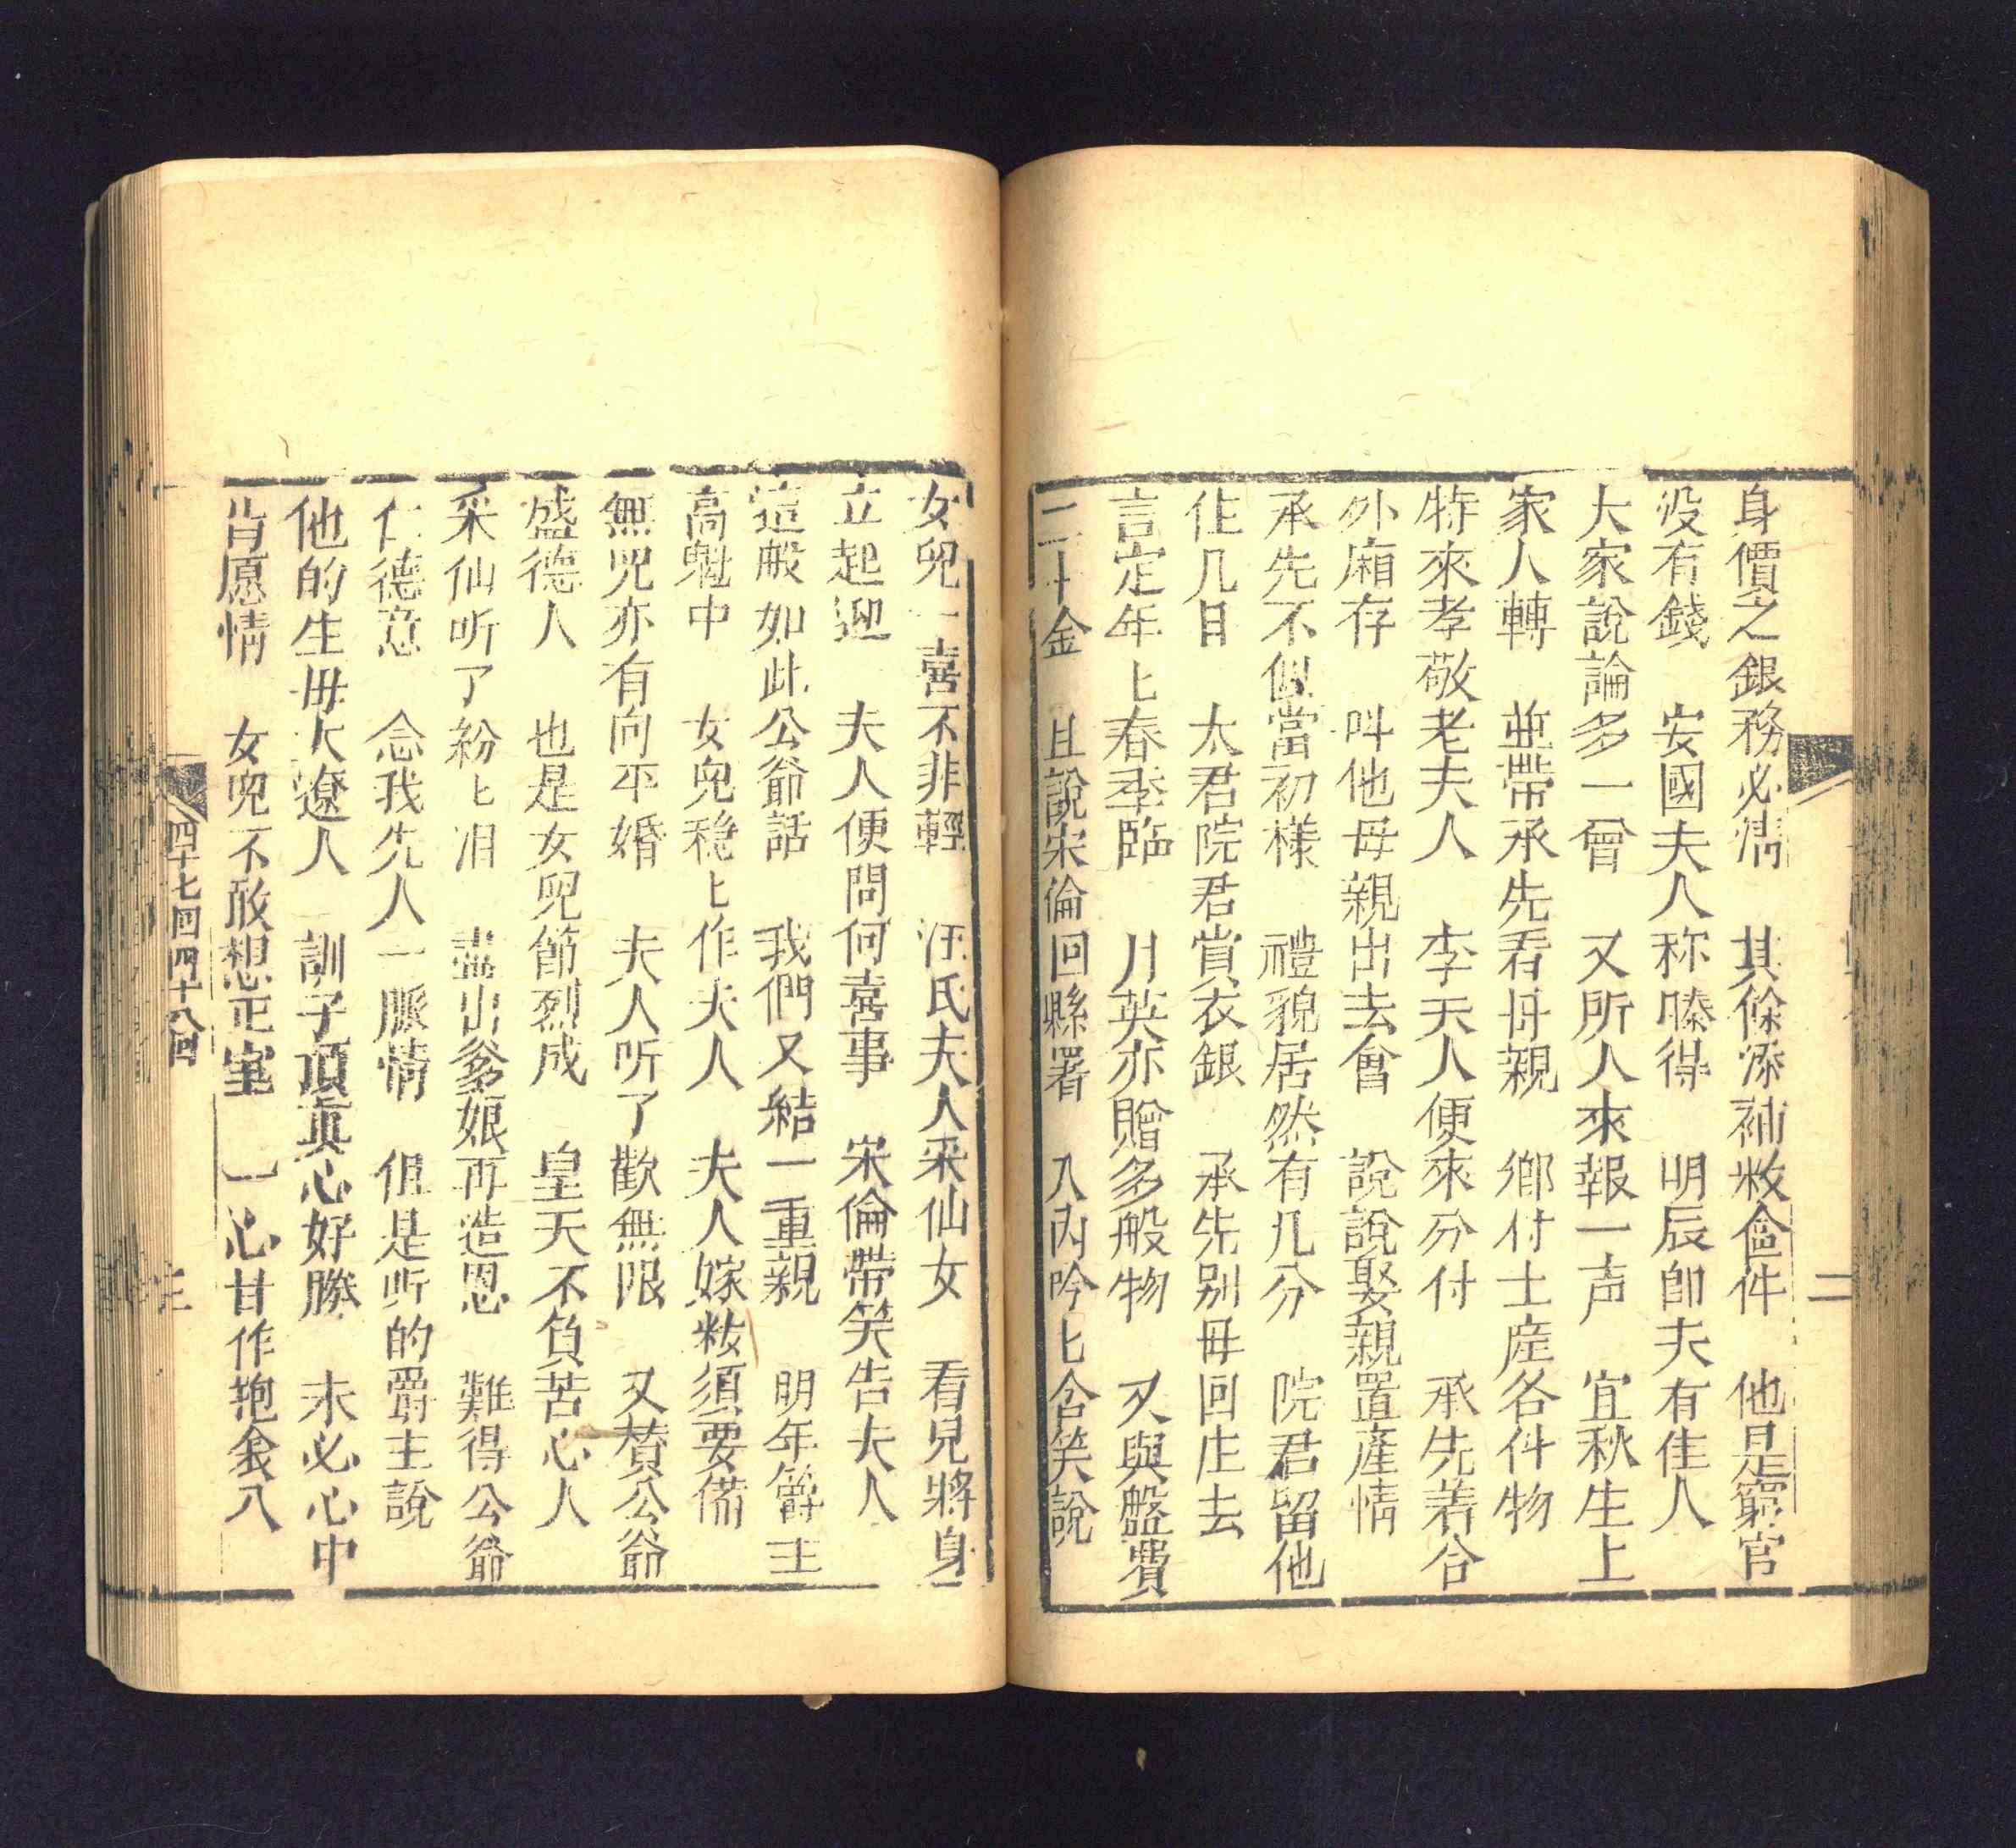 身價之銀務必清 其餘添補敕僉件 他是窮官
没有錢 安國夫人称㗱得 明辰卽夫有佳人
大家說論多一會 又所人來報一声 宜秋生上
家人轉 並帶承先看母親 鄉付土産各件物
特來孝敬老夫人 李夫人便來分付 承先着合
外廂存 叫他母親出去會 說說娶親置產情
承先不似當初樣 禮貌居然有几分 院君留他
住几日 太君院君賞衣銀 承先别母回庄去
言定年匕春季臨 月英亦贈多般物 又與盤費
二十金 且說宋倫回縣署 入內吟匕含笑說
二
女兒一喜不非輕 汪氏夫人采仙女 看見將身
立起迎 夫人便問何喜事 宋倫帶笑告夫人
這般如此公爺話 我們又結一重親 明年爵主
高魁中 女兒穏匕作夫人 夫人嫁粧須要備
無兒亦有向平婚 夫人听了歡無限 又賛公爺
盛德人 也是女兒節烈成 皇天不負苦心人
采仙听了紛匕泪 盡出爹娘再造恩 難得公爺
仁德意 念我先人一脈情 但是听的爵主說
他的生毋大遼人 訓子頂真心好勝 未必心中
肯愿情 女兒不敢想正室 一心甘作抱衾人
四十七回四十八回
三